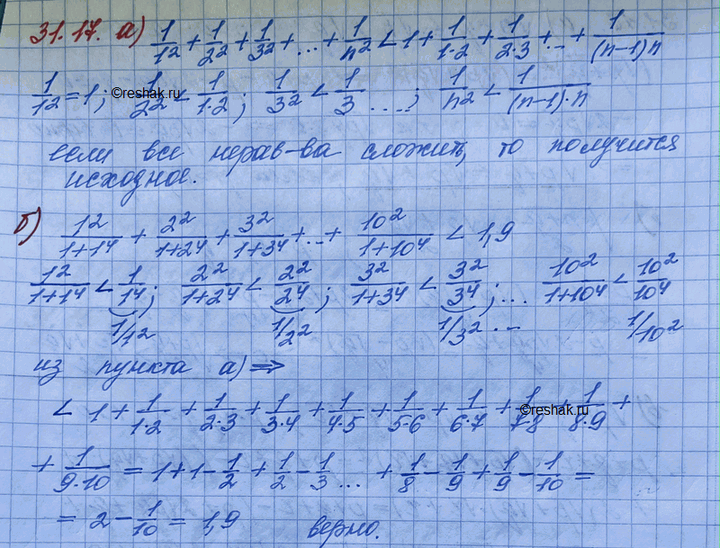 31.17. а) 1/1² + 1/2² + 1/3² + ... + 1/n² < 1 + 1/1·2 + 1/2·3 + ... + 1/(n-1)n
1/1² = 1; 1/2² < 1/1·2; 1/3² < 1/3 ....; 1/n² < 1/(n-1)·n
©reshak.ru
если все нерав-ва сложить, то получится
исходное.
б) 1²/1+1⁴ + 2²/1+2⁴ + 3²/1+3⁴ + ... + 10²/1+10⁴ < 1,9
1²/1+1⁴ < 1/1⁴; 2²/1+2⁴ < 2²/2⁴; 3²/1+3⁴ < 3²/3⁴; ... 10²/1+10⁴ < 10²/10⁴
1/1² 1/2² 1/3² ... 1/10²
из пункта а) ⇒
< 1 + 1/1·2 + 1/2·3 + 1/3·4 + 1/4·5 + 1/5·6 + 1/6·7 + 1/7·8 + 1/8·9 +
©reshak.ru
+ 1/9·10 = 1 + 1 - 1/2 + 1/2 - 1/3 ... + 1/8 - 1/9 + 1/9 - 1/10 =
= 2 - 1/10 = 1,9 верно.